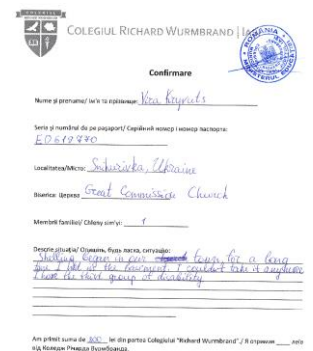 COLEGIUL RICHARD WURMBRAND | Ia
ROMANIA
Confirmare
Nume și prenume/ Ім'я та прізвище: Vira
Seria și numărul de pe pașaport/ Серійний номер і номер паспорта:
Localitatea/Місто: Ukraine
Biserica: Церква Great Commission Church
Membrii familiei/ Chleny sim'yi: 1
Descrie situația/ Опишіть, будь ласка, ситуацію:
Shelling began in our town, for a long
time I hid in the basement. I couldn't take it anymore
I have the third group of disability
Am primit suma de 300 lei din partea Colegiului "Richard Wurmbrand"./ Я отримав ____ леїв
від Коледж Річарда Вурмбранда.